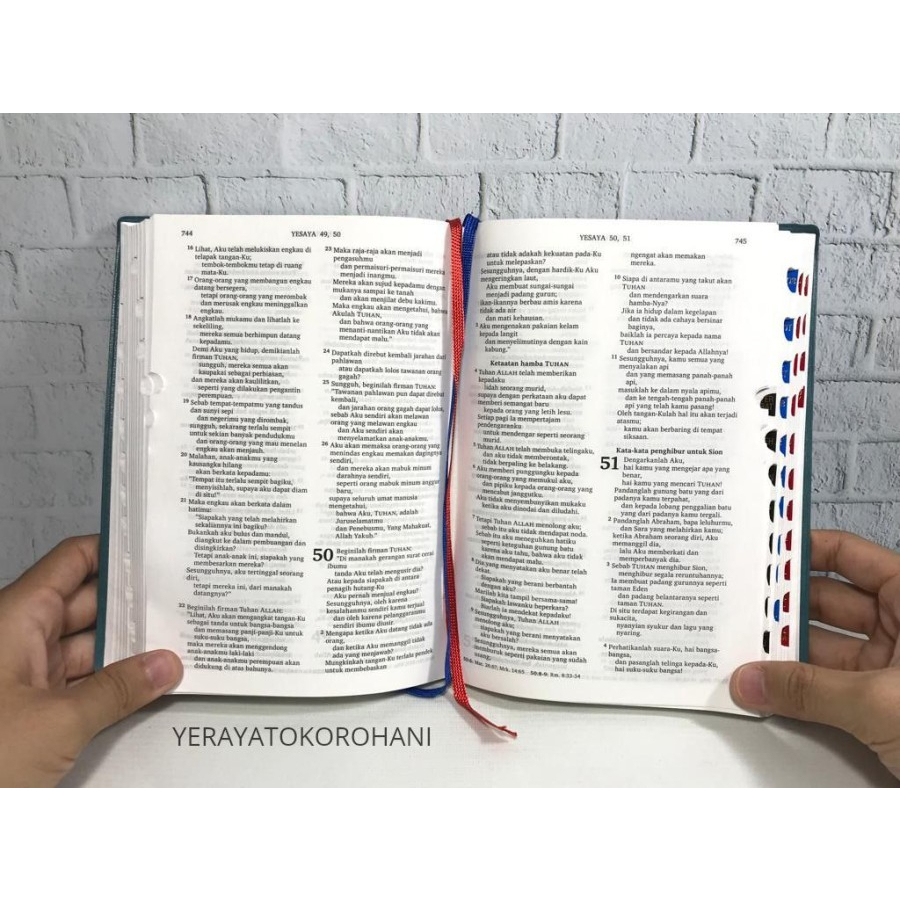 744
YESAYA 49, 50
16 Lihat, Aku telah melukiskan engkau di
telapak tangan-Ku;
tembok-tembokmu tetap di ruang
mata-Ku.
17 Orang-orang yang membangun engkau
datang bersegera,
tetapi orang-orang yang merombak
dan merusak engkau meninggalkan
engkau.
18 Angkatlah mukamu dan lihatlah ke
sekeliling,
mereka semua berhimpun datang
kepadamu.
Demi Aku yang hidup, demikianlah
firman TUHAN,
sungguh, mereka semua akan
kaupakai sebagai perhiasan,
dan mereka akan kaulilitkan,
seperti yang dilakukan pengantin
perempuan.
19 Sebab tempat-tempatmu yang tandus
dan sunyi sepi
dan negerimu yang dirombak,
sungguh, sekarang terlalu sempit
untuk sekian banyak pendudukmu
dan orang-orang yang mau menelan
engkau akan menjauh.
20 Malahan, anak-anakmu yang
kausangka hilang
akan berkata kepadamu:
"Tempat itu terlalu sempit bagiku,
menyisihlah, supaya aku dapat diam
di situ!"
21 Maka engkau akan berkata dalam
hatimu:
"Siapakah yang telah melahirkan
sekaliannya ini bagiku?
Bukankah aku bulus dan mandul,
diangkut ke dalam pembuangan dan
disingkirkan?
Tetapi anak-anak ini, siapakah yang
membesarkan mereka?
Sesungguhnya, aku tertinggal seorang
diri,
tetapi mereka ini, dari manakah
datangnya?"
22 Beginilah firman Tuhan ALLAH:
"Lihat, Aku akan mengangkat tangan-Ku
sebagai tanda untuk bangsa-bangsa
dan memasang panji-panji-Ku untuk
suku-suku bangsa,
maka mereka akan menggendong
anak-anakmu laki-laki
dan anak-anakmu perempuan akan
didukung di atas bahunya.
23 Maka raja-raja akan menjadi
pengasuhmu
dan permaisuri-permaisuri mereka
menjadi inangmu.
Mereka akan sujud kepadamu dengan
mukanya sampai ke tanah
dan akan menjilat debu kakimu.
Maka engkau akan mengetahui, bahwa
Akulah TUHAN,
dan bahwa orang-orang yang
menanti-nantikan Aku tidak akan
mendapat malu."
24 Dapatkah direbut kembali jarahan dari
pahlawan
atau dapatkah lolos tawanan orang
gagah?
25 Sungguh, beginilah firman TUHAN:
"Tawanan pahlawan pun dapat direbut
kembali,
dan jarahan orang gagah dapat lolos,
sebab Aku sendiri akan melawan
orang yang melawan engkau
dan Aku sendiri akan
menyelamatkan anak-anakmu.
26 Aku akan memaksa orang-orang yang
menindas engkau memakan dagingnya
sendiri,
dan mereka akan mabuk minum
darahnya sendiri,
seperti orang mabuk minum anggur
baru,
supaya seluruh umat manusia
mengetahui,
bahwa Aku, TUHAN, adalah
Juruselamatmu
dan Penebusmu, Yang Mahakuat,
Allah Yakub."
50 Beginilah firman TUHAN:
"Di manakah gerangan surat cerai
ibumu
tanda Aku telah mengusir dia?
Atau kepada siapakah di antara
penagih hutang-Ku
Aku pernah menjual engkau?
Sesungguhnya, oleh karena
kesalahanmu sendiri kamu terjual
dan oleh karena pelanggaranmu
sendiri ibumu diusir.
2 Mengapa ketika Aku datang tidak ada
orang,
dan ketika Aku memanggil tidak
ada yang menjawab?
Mungkinkah tangan-Ku terlalu pendek
untuk membebaskan
YESAYA 50, 51
745
atau tidak adakah kekuatan pada-Ku
untuk melepaskan?
Sesungguhnya, dengan hardik-Ku Aku
mengeringkan laut,
Aku membuat sungai-sungai
menjadi padang gurun;
ikan-ikannya berbau amis karena
tidak ada air
dan mati kehausan.
3 Aku mengenakan pakaian kelam
kepada langit
dan menyelimutinya dengan kain
kabung."
Ketaatan hamba TUHAN
4 Tuhan ALLAH telah memberikan
kepadaku
lidah seorang murid,
supaya dengan perkataan aku dapat
memberi semangat baru
kepada orang yang letih lesu.
Setiap pagi Ia mempertajam
pendengaranku
untuk mendengar seperti seorang
murid.
5 Tuhan ALLAH telah membuka telingaku,
dan aku tidak memberontak,
tidak berpaling ke belakang.
6 Aku memberi punggungku kepada
orang-orang yang memukul aku,
dan pipiku kepada orang-orang yang
mencabut janggutku.
Aku tidak menyembunyikan mukaku
ketika aku dinodai dan diludahi.
7 Tetapi Tuhan ALLAH menolong aku;
sebab itu aku tidak mendapat noda.
Sebab itu aku meneguhkan hatiku
seperti keteguhan gunung batu
karena aku tahu, bahwa aku tidak
akan mendapat malu.
8 Dia yang menyatakan aku benar telah
dekat.
Siapakah yang berani berbantah
dengan aku?
Marilah kita tampil bersama-sama!
Siapakah lawanku beperkara?
Biarlah ia mendekat kepadaku!
9 Sesungguhnya, Tuhan ALLAH
menolong aku;
siapakah yang berani menyatakan
aku bersalah?
Sesungguhnya, mereka semua akan
memburuk seperti pakaian yang sudah
usang;
50:6: Mat. 26:67; Mrk. 14:65 50:8-9: Rm. 8:33-34
ngengat akan memakan
mereka.
10 Siapa di antaramu yang takut akan
TUHAN
dan mendengarkan suara
hamba-Nya?
Jika ia hidup dalam kegelapan
dan tidak ada cahaya bersinar
baginya,
baiklah ia percaya kepada nama
TUHAN
dan bersandar kepada Allahnya!
11 Sesungguhnya, kamu semua yang
menyalakan api
dan yang memasang panah-panah
api,
masuklah ke dalam nyala apimu,
dan ke tengah-tengah panah-panah
api yang telah kamu pasang!
Oleh tangan-Kulah hal itu akan terjadi
atasmu;
kamu akan berbaring di tempat
siksaan.
Kata-kata penghibur untuk Sion
51 Dengarkanlah Aku,
hai kamu yang mengejar apa yang
benar,
hai kamu yang mencari TUHAN!
Pandanglah gunung batu yang dari
padanya kamu terpahat,
dan kepada lobang penggalian batu
yang dari padanya kamu tergali.
2 Pandanglah Abraham, bapa leluhurmu,
dan Sara yang melahirkan kamu;
ketika Abraham seorang diri, Aku
memanggil dia,
lalu Aku memberkati dan
memperbanyak dia.
3 Sebab TUHAN menghibur Sion,
menghibur segala reruntuhannya;
Ia membuat padang gurunnya seperti
taman Eden
dan padang belantaranya seperti
taman TUHAN.
Di situ terdapat kegirangan dan
sukacita,
nyanyian syukur dan lagu yang
nyaring.
4 Perhatikanlah suara-Ku, hai bangsa-
bangsa,
dan pasanglah telinga kepada-Ku,
hai suku-suku bangsa!
YERAYATOKOROHANI